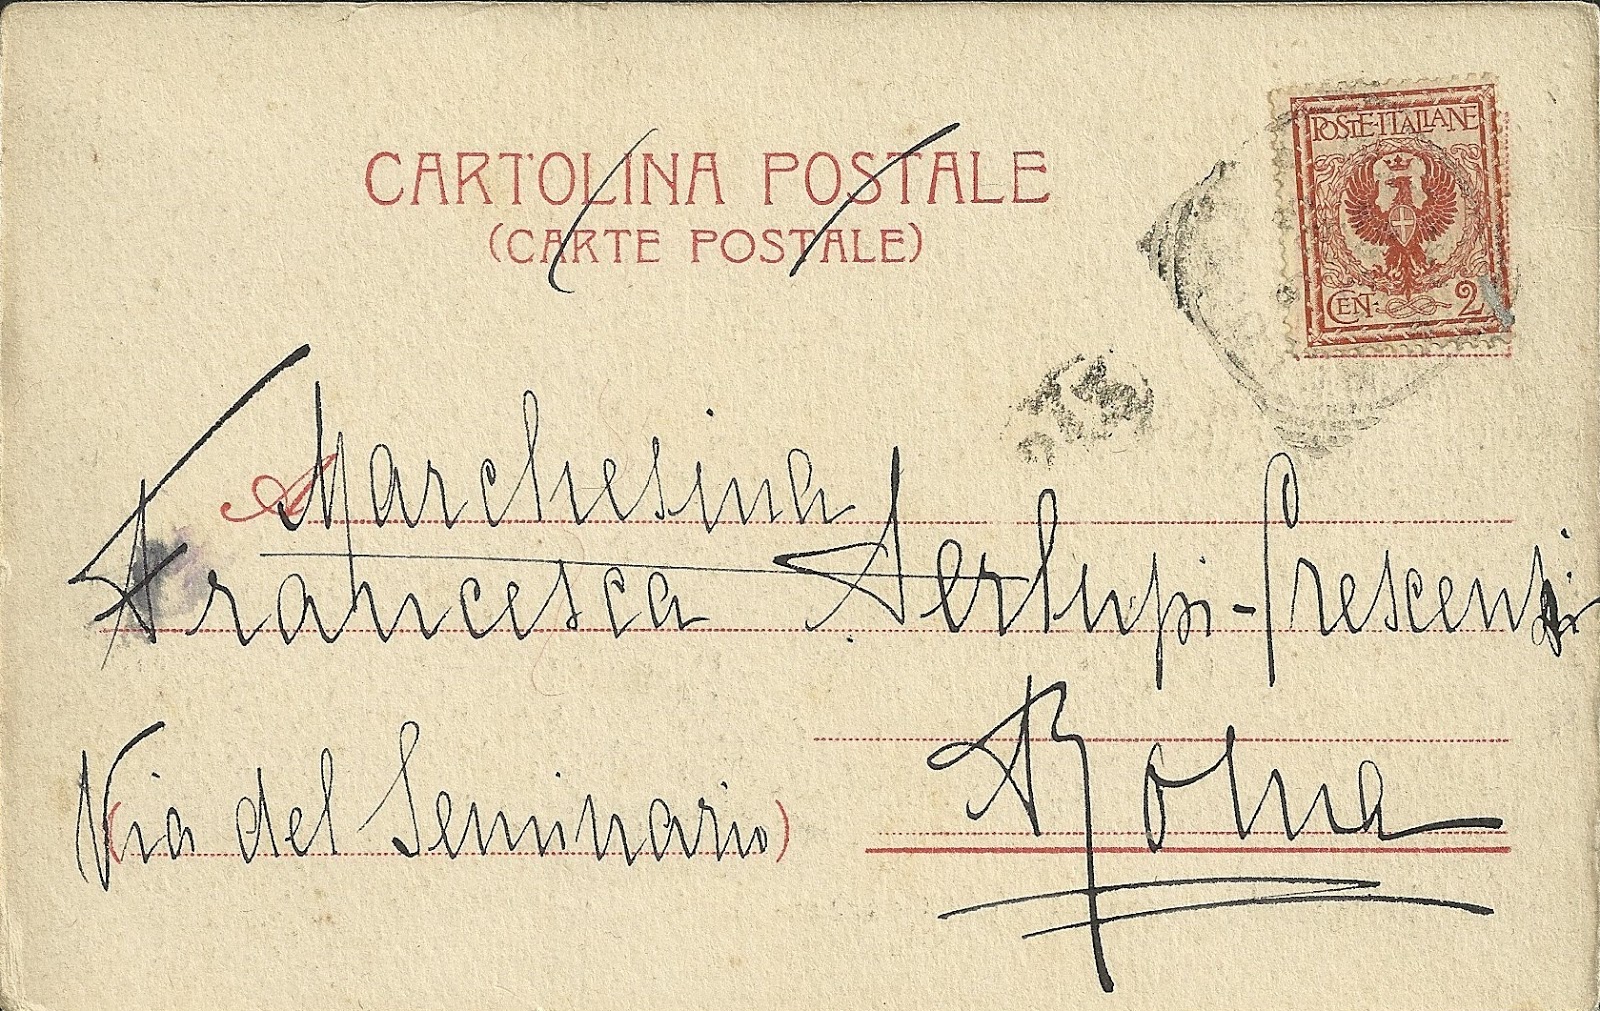 CARTOLINA POSTALE
(CARTE POSTALE)
POSTE·ITALIANE
CENT: 2
A Marchesina
Francesca Serlupi-Crescenzi
Roma
(Via del Seminario)